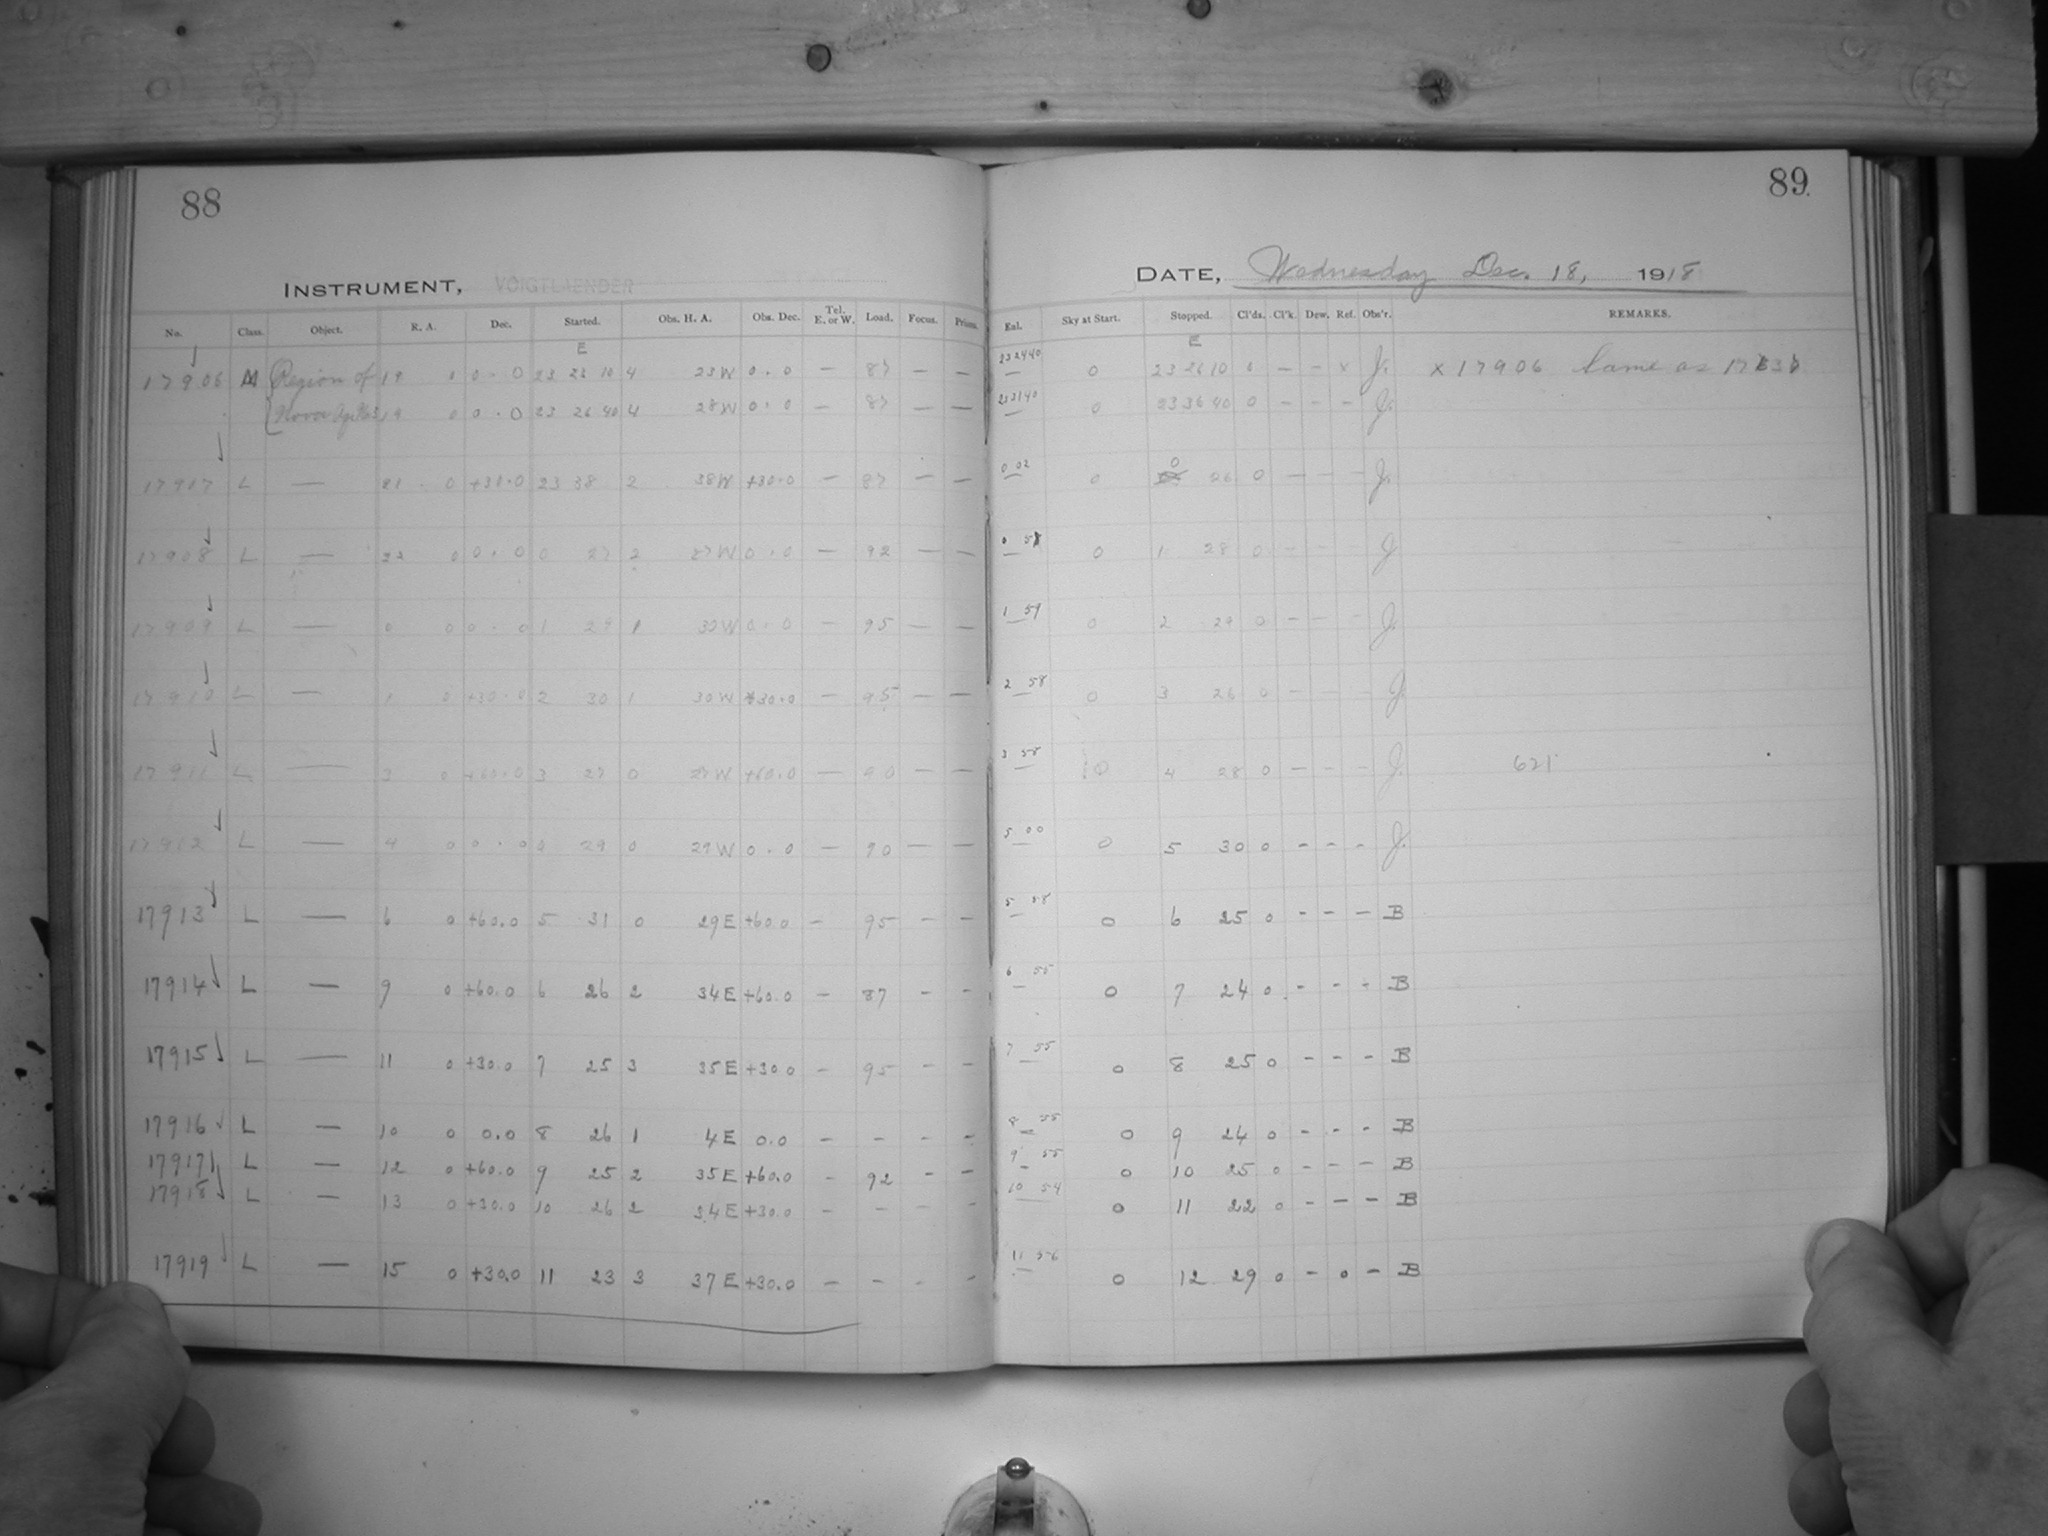 88
89
INSTRUMENT, VOIGTLAENDER
DATE, Wednesday Dec. 18, 1918
No. Class. Object. R. A. Dec. Started. Obs. H. A. Obs. Dec. Tel. E. or W. Load. Focus. Prism.
Eal. Sky at Start. Stopped. Cl'ds. Cl'k. Dew. Ref. Obs'r. REMARKS.
E E
17906 M Region of 19 0 0.0 23 23 10 4 23W 0.0 — 87 — — 232440 0 23 26 10 0 — — x J. x 17906 Same as
Nova 19 0 0.0 23 26 40 4 28W 0.0 — 87 — — 233140 0 23 36 40 0 — — — J.
L — 21 0 +30.0 23 38 2 38W +30.0 — 87 — — 0 02 0 0 26 0 — — — J.
17908 L — 22 0 0.0 0 27 2 27W 0.0 — 92 — — 0 0 1 28 0 — — J
17909 L — 0 0 0.0 1 29 1 W 0.0 — 95 — — 1 59 0 2 29 0 — — - J.
17910 L — 1 0 +30.0 2 30 1 30W +30.0 — 95 — — 2 58 0 3 26 0 — — - J.
17911 L — 3 0 +60.0 3 27 0 27W +60.0 — 90 — — 3 58 0 4 28 0 — — - J. 621
17912 L — 4 0 0.0 4 29 0 29W 0.0 — 90 — — 5 00 0 5 30 0 - - - J.
17913 L — 6 0 +60.0 5 31 0 29E +60.0 — 95 — — 5 58 0 6 25 0 - - — B
17914 L — 9 0 +60.0 6 26 2 34E +60.0 — 87 - - 6 55 0 7 24 0 - - - B
17915 L — 11 0 +30.0 7 25 3 35E +30.0 — 95 - - 7 55 0 8 25 0 - - - B
17916 L — 10 0 0.0 8 26 1 4E 0.0 - - - - 8 55 0 9 24 0 - - - B
17917 L — 12 0 +60.0 9 25 2 35E +60.0 - 92 - - 9 55 0 10 25 0 - - - B
17918 L — 13 0 +30.0 10 26 2 34E +30.0 - - - - 10 54 0 11 22 0 - - - B
17919 L — 15 0 +30.0 11 23 3 37E +30.0 - - - - 11 56 0 12 29 0 - 0 - B